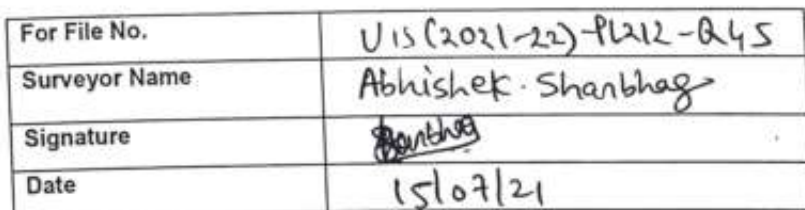 For File No. UIS(2021-22)-PL212-Q45
Surveyor Name Abhishek. Shanbhag
Signature
Date 15/07/21